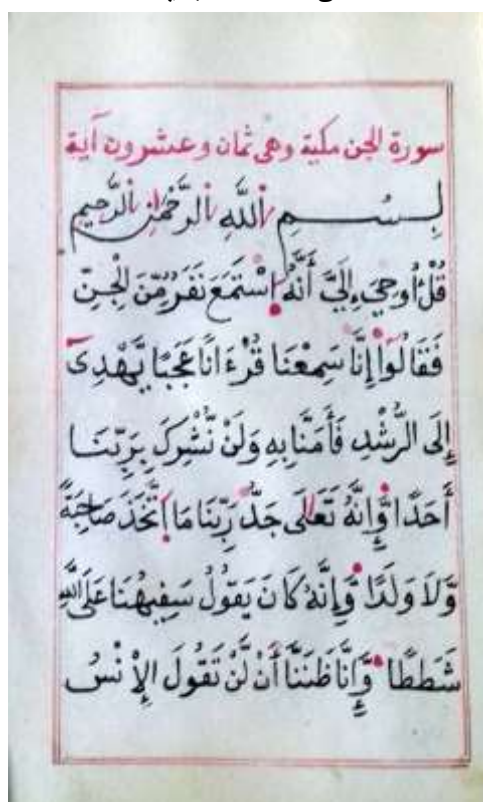 سورة الجن مكية وهي ثمان وعشرون آية
بِسْمِ اللَّهِ الرَّحْمَٰنِ الرَّحِيمِ
قُلْ أُوحِيَ إِلَيَّ أَنَّهُ اسْتَمَعَ نَفَرٌ مِّنَ الْجِنِّ
فَقَالُوا إِنَّا سَمِعْنَا قُرْءَانًا عَجَبًا يَّهْدِى
إِلَى الرُّشْدِ فَأَمَنَّا بِهِ وَلَنْ نُّشْرِكَ بِرَبِّنَا
أَحَدًا وَّإِنَّهُ تَعَالَى جَدُّ رَبِّنَا مَا اتَّخَذَ صَاحِبَةً
وَّلَا وَلَدًا وَّإِنَّهُ كَانَ يَقُولُ سَفِيهُنَا عَلَى اللَّهِ
شَطَطًا وَّإِنَّا ظَنَنَّا أَنْ لَّنْ تَقُولَ الْإِنْسُ